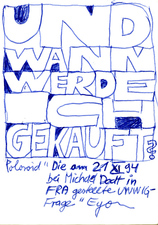 UND
WANN
WERDE
ICH
GEKAUFT?
Poloroid" Die am 21 XI 94
bei Michael Dodt in
FRA gestellte
Frage" Eyon